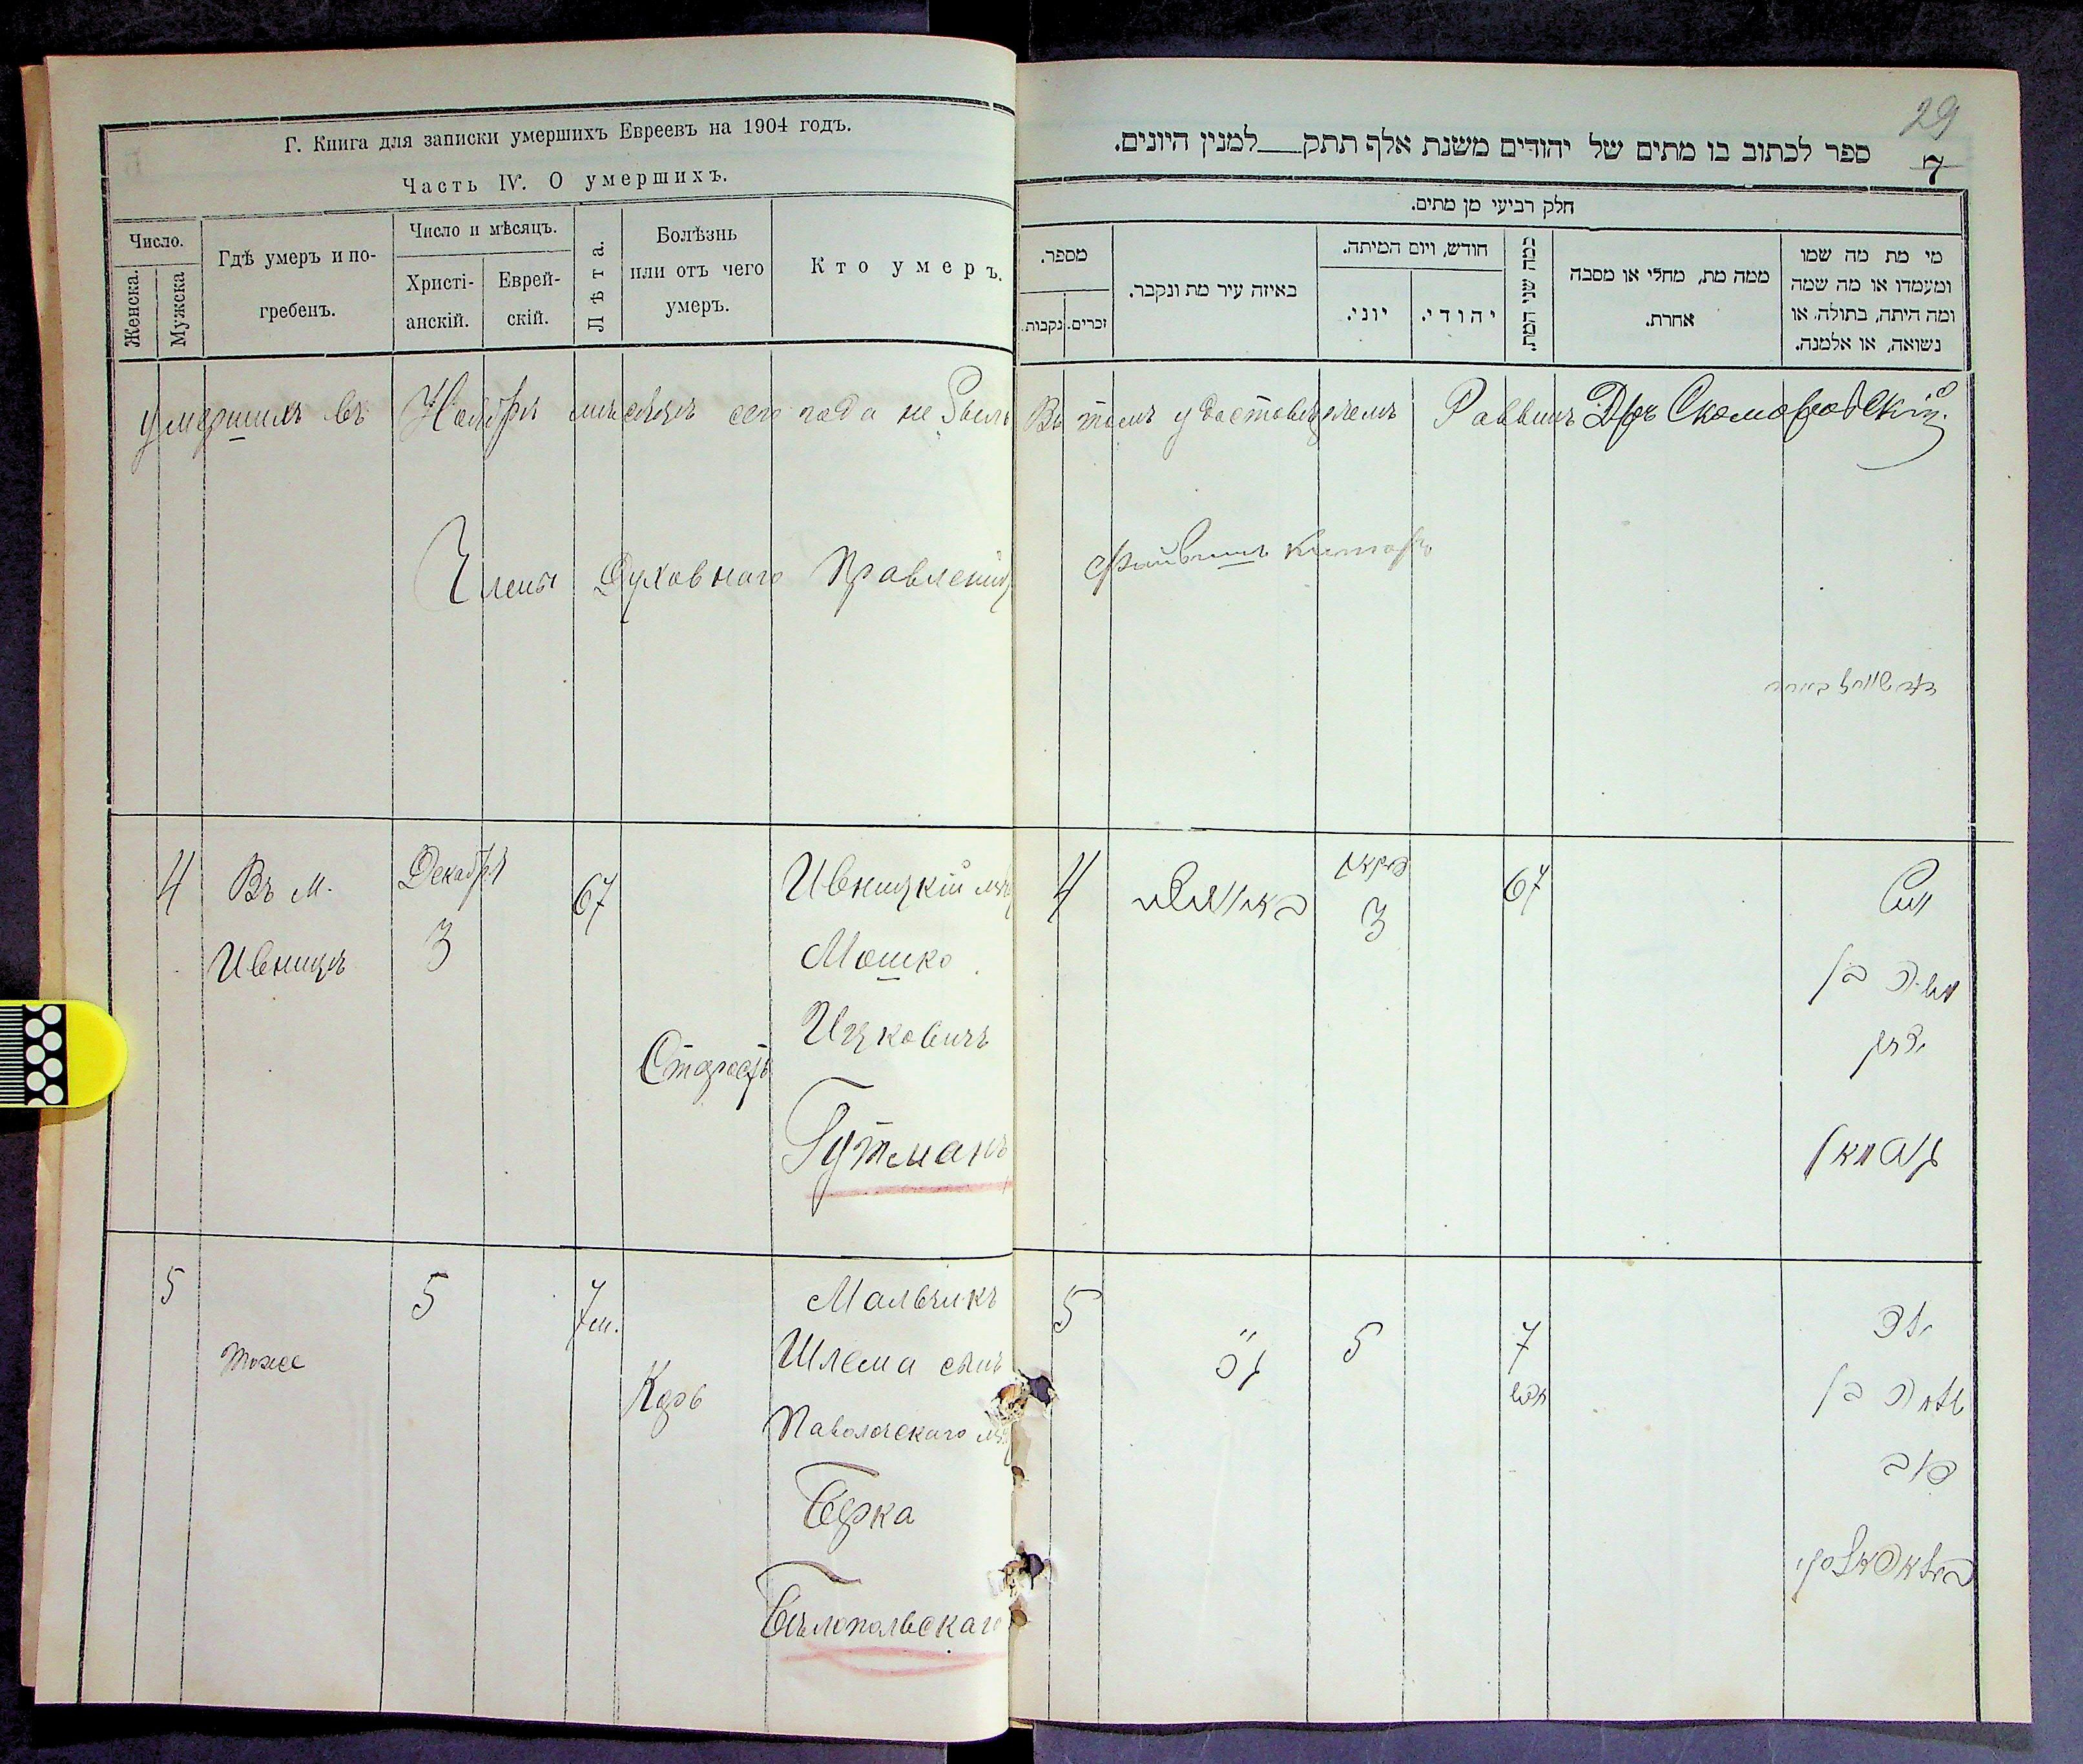 Г. Книга для записки умершихъ Евреевъ на 1904 годъ.
Часть IV. О умершихъ.
Число.
Женска.
Мужска
Гдѣ умеръ и по-
гребенъ.
Число и мѣсяцъ.
Христі-
анскій.
Еврей-
скій.
Лѣта.
Болѣзнь
или отъ чего
умеръ.
Кто умеръ.
умершихъ въ Ноябрѣ мѣсяцѣ сего года не было
Члены Духовнаго Правленія
4
Въ м.
Ивницѣ
Декабря
3
67
Старость
Ивницкій мѣщ
Мошко
Ицковичъ
Гутманъ
5
тоже
5
7 м.
Корь
Мальчикъ
Шлема сынъ
Паволочскаго мѣщ
Берка
Бѣлопольскаго
29
7
ספר לכתוב בו מתים של יהודים משנת אלף תתק___למנין היונים.
חלק רביעי מן מתים.
מספר.
נקבות.
זכרים.
באיזה עיר מת ונקבר.
חודש, ויום המיתה.
יוני.
יהודי.
כמה שני המת.
ממה מת, מחלי או מסבה
אחרת.
מי מת מה שמו
ומעמדו או מה שמה
ומה היתה, בתולה או
נשואה, או אלמנה.
Въ томъ удостовѣряемъ Раввинъ Д-ръ Скоморовскій
4
3
67
משה בן
יצחק
גוטמאן
5
5
7
ילד
שלמה בן
בער